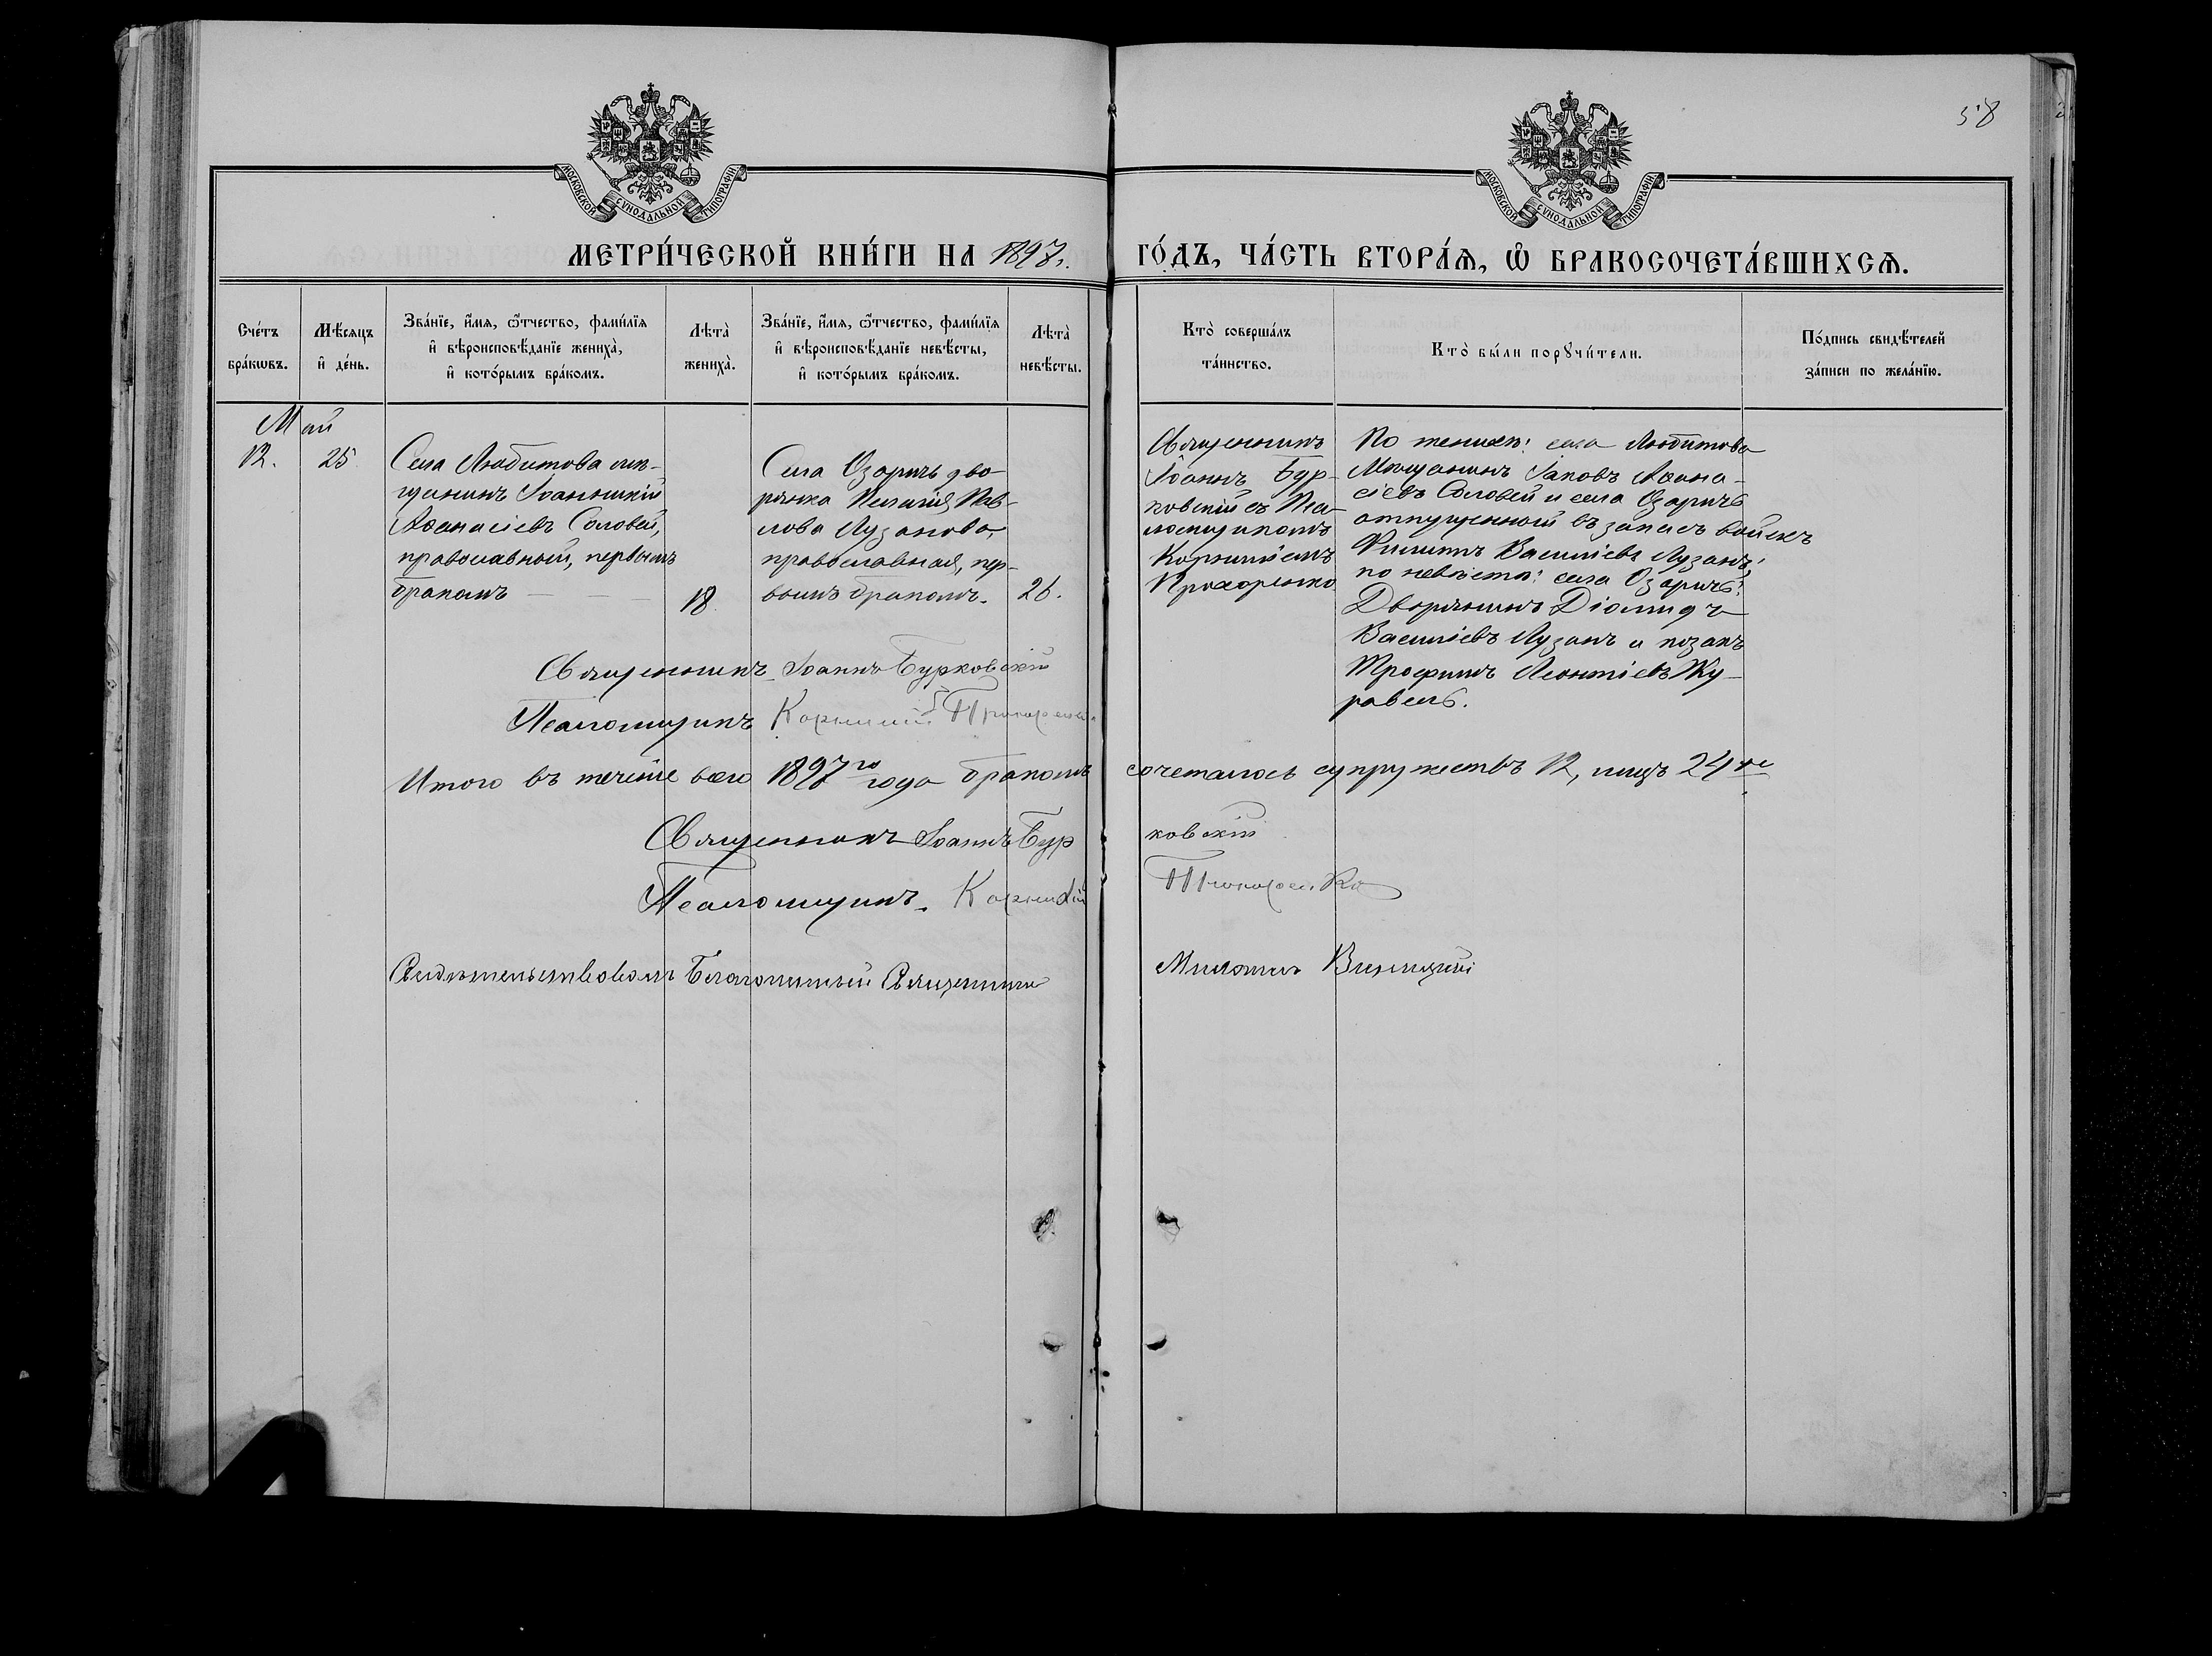 58
МОСКОВСКОЙ СѴНОДАЛЬНОЙ ТИПОГРАФІИ
МОСКОВСКОЙ СѴНОДАЛЬНОЙ ТИПОГРАФІИ
МЕТРИ́ЧЕСКОЙ КНИ́ГИ НА 1897 г.
ГО́ДЪ, ЧА́СТЬ ВТОРА́Ѧ, Ѽ БРАКОСОЧЕТА́ВШИХСѦ.
Сче́тъ
бра́кѡвъ.
Мѣ́сяцъ
и҆ де́нь.
Зва́нїе, и҆́мѧ, ѻ҆́тчество, фами́лїѧ
и҆ вѣроисповѣ́данїе жениха̀,
и҆ кото́рымъ бра́комъ.
Лѣта̀
жениха̀.
Зва́нїе, и҆́мѧ, ѻ҆́тчество, фами́лїѧ
и҆ вѣроисповѣ́данїе невѣ́сты,
и҆ кото́рымъ бра́комъ.
Лѣта̀
невѣ́сты.
Кто̀ соверша́лъ
та́инство.
Кто̀ бы́ли порꙋчи́тели.
По́дпись свидѣ́телей
за́писи по жела́нїю.
Май
12.
25
Села Любитова мѣ-
щанинъ Іоанникій
Аѳанасіевъ Соловей,
православный, первымъ
бракомъ
18.
Села Озаричъ дво-
рянка Пелагія Пав-
лова Лузанова,
православная, пер-
вымъ бракомъ.
26.
Священникъ
Іоаннъ Бур-
ковскій съ Пса-
ломщикомъ
Корниліемъ
Прохоренко
По женихѣ: села Любитова
Мѣщанинъ Іаковъ Аѳана-
сіевъ Соловей и села Озаричъ
отпущенный въ запасъ войскъ
Филиппъ Василіевъ Лузанъ;
по невѣстѣ: села Озаричъ:
Дворянинъ Діомидъ
Василіевъ Лузанъ и козакъ
Трофимъ Леонтіевъ Жу-
равель.
Священникъ Іоаннъ Бурковскій
Псаломщикъ Корнилій Прохоренко
Итого въ теченіе всего 1897го года бракомъ сочеталось супружествъ 12, лицъ 24ре
Священникъ Іоаннъ Бурковскій
Псаломщикъ Корнилій Прохоренко
Свидѣтельствовалъ Благочинный Священникъ Виницкій